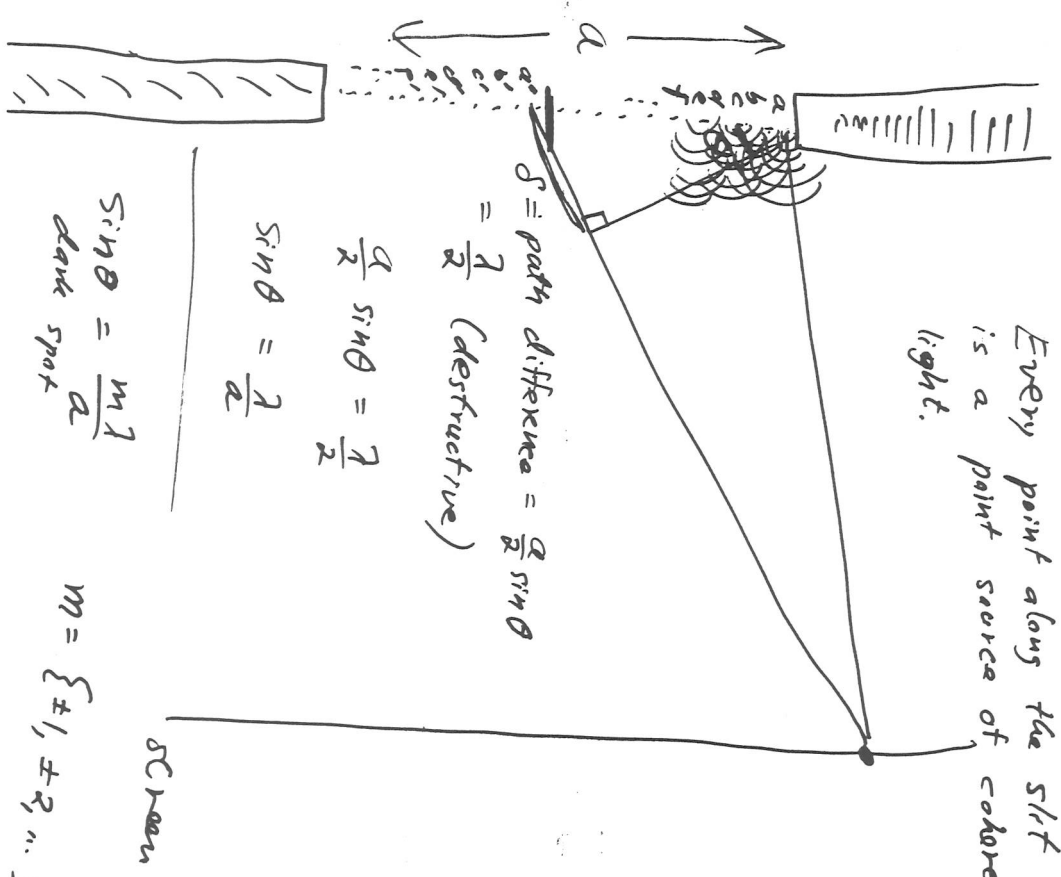 Every point along the slit
is a point source of cohere
light.
a
a b c d e f
a' b' c' d' e' f'
δ = path difference = a/2 sinθ
= λ/2 (destructive)
a/2 sinθ = λ/2
sinθ = λ/a
sinθ = mλ/a
dark spot
m = {±1, ±2, ...
screen